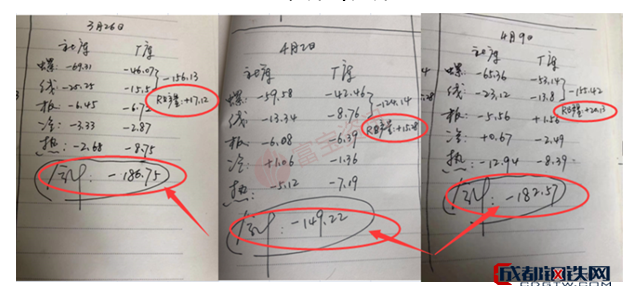 3月26日
社库 T库
螺: -69.31 -46.07
-156.13
线: -25.25 -15.5
RB产量: +17.12
板: -6.45 -6.7
冷: -3.33 -2.87
热: -2.68 -8.75
合计: -186.75
4月2日
社库 T库
螺: -59.58 -42.46
-124.14
线: -13.34 -8.76
RB产量: +15.
板: -6.08 -6.39
冷: +1.06 -1.36
热: -5.12 -7.19
合计: -149.22
富宝资
4月9日
社库 T库
螺: -65.36 -53.14
-155.42
线: -23.12 -13.8
RB产量: +20.13
板: -5.56 +1.56
冷: +0.67 -2.49
热: -12.94 -8.39
合计: -182.57
成都钢铁网
CDGTW.COM